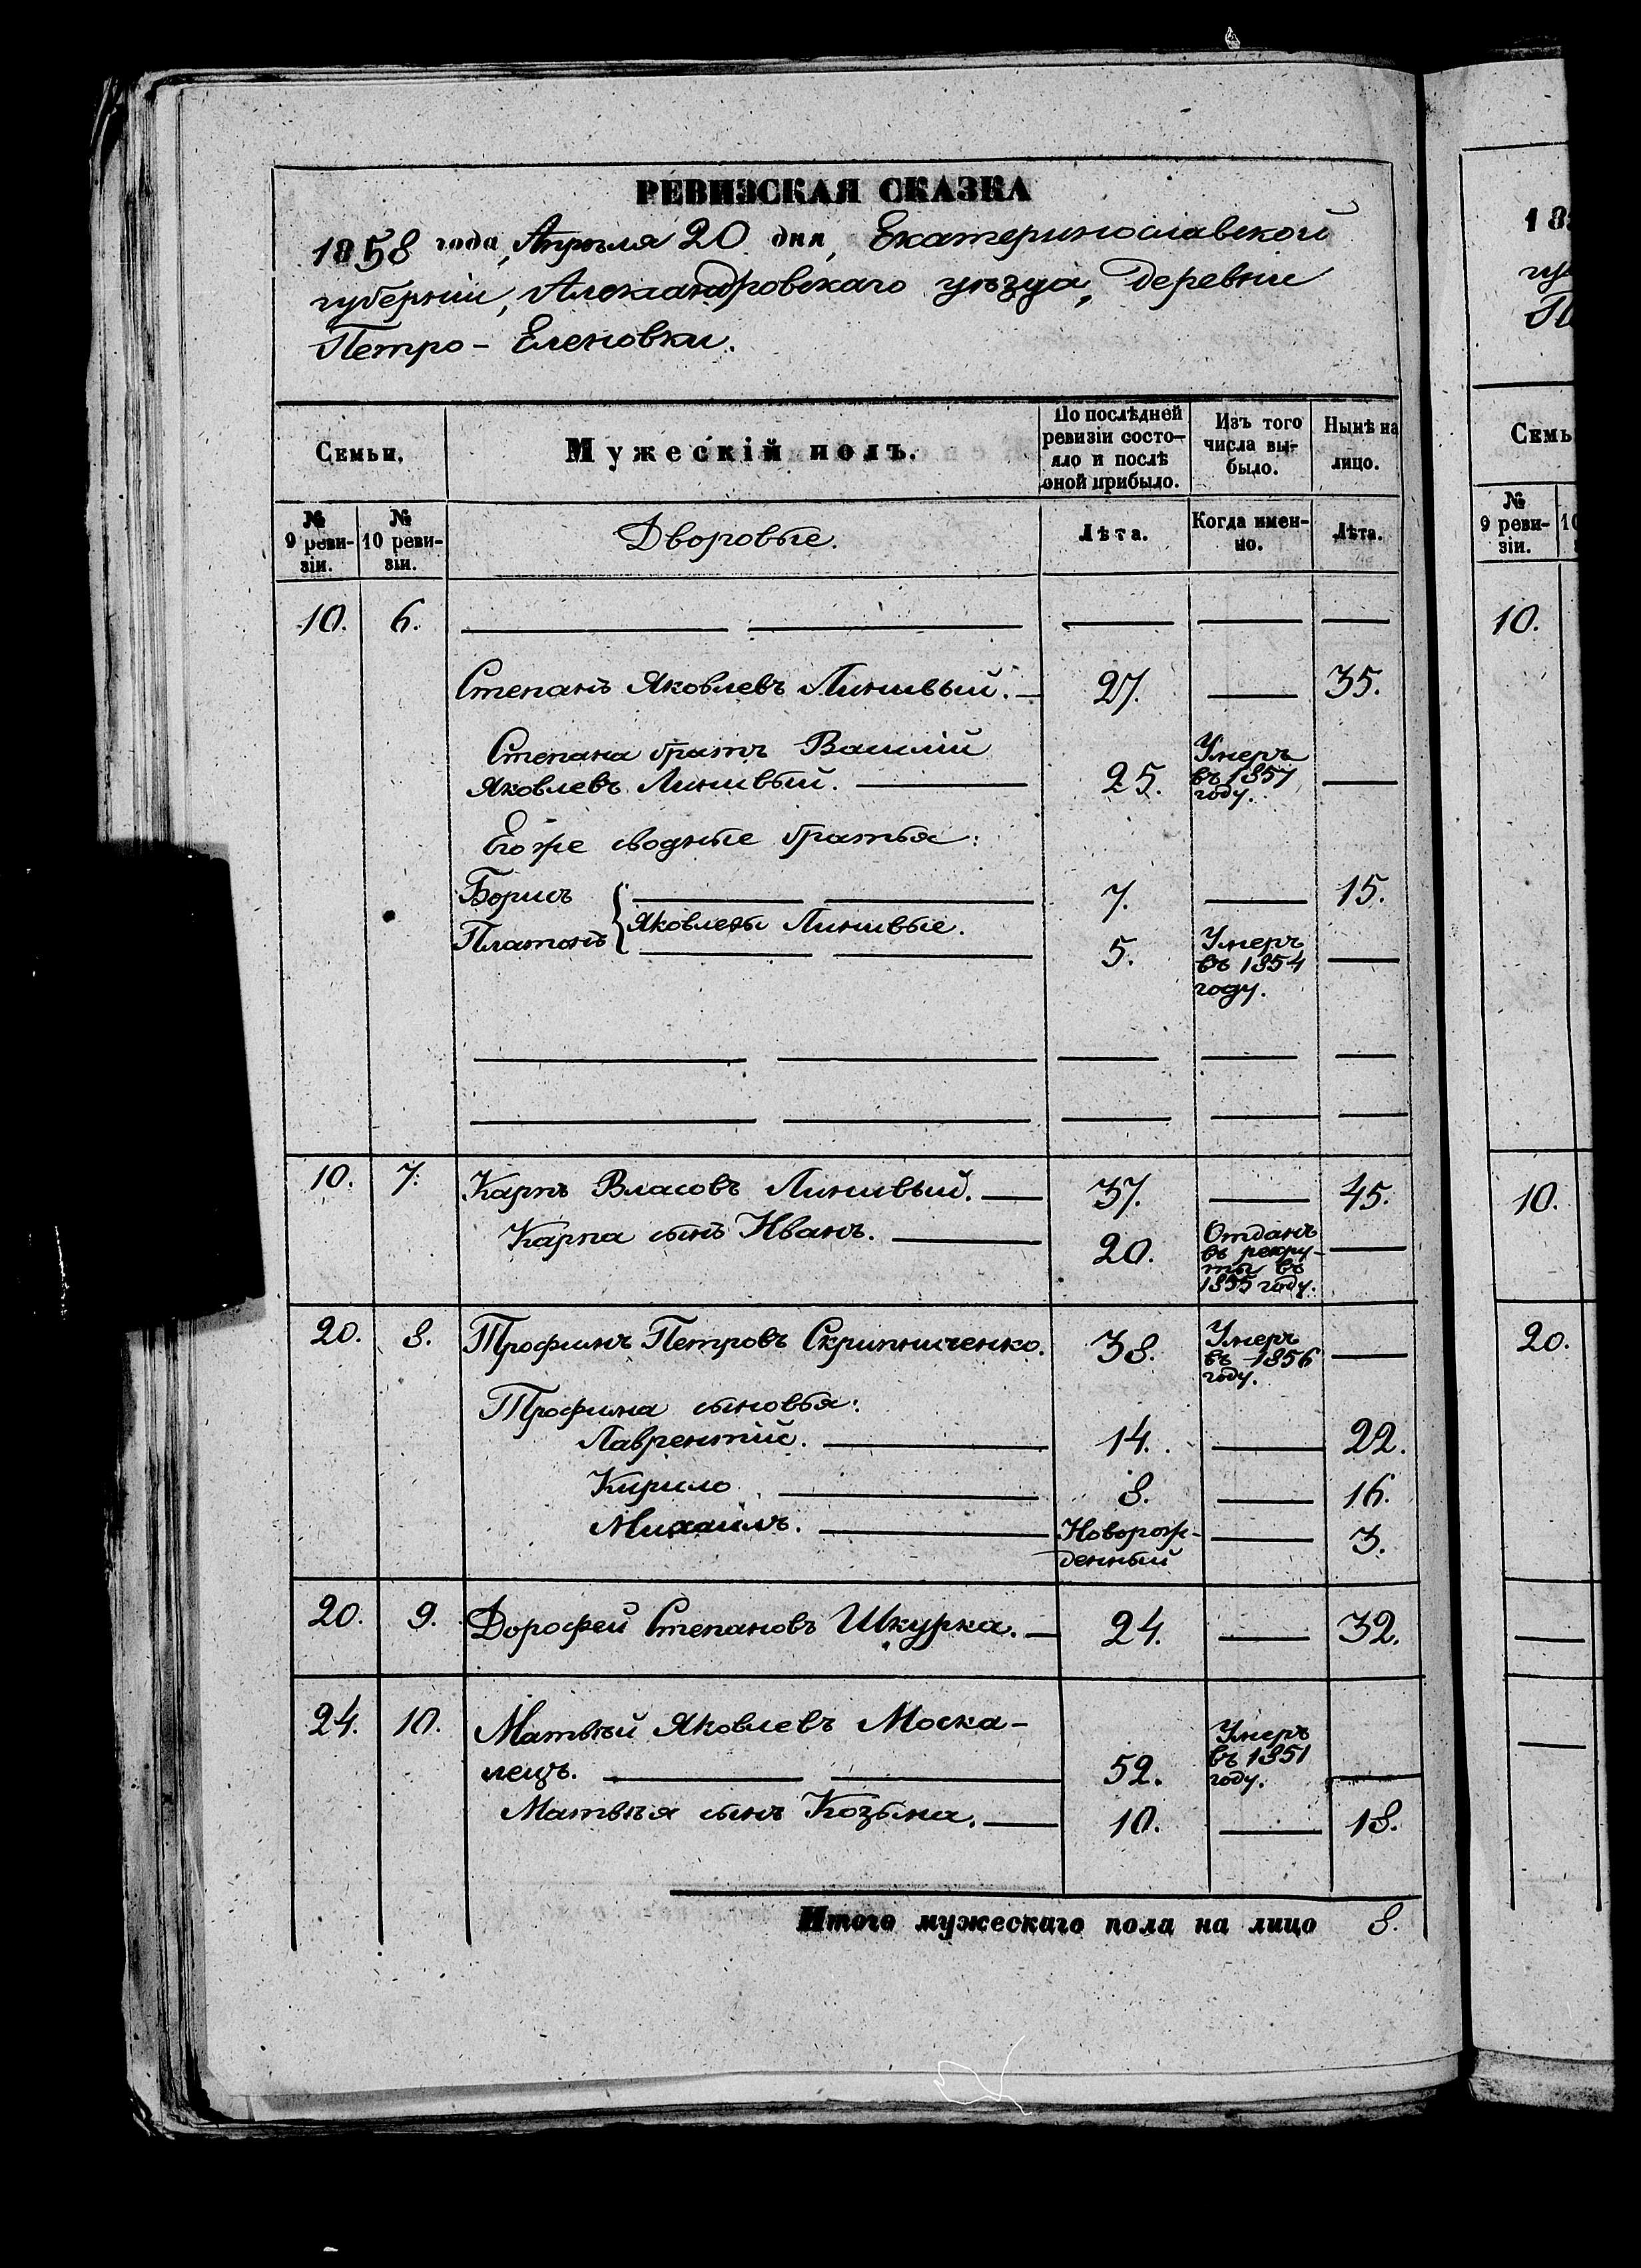 РЕВИЗСКАЯ СКАЗКА
1858 года, Апрѣля 20 дня, Екатеринославской
губерніи, Александровскаго уѣзда, деревни
Петро-Еленовки.
Семьи. Мужескій полъ. По послѣдней ревизіи состо- яло и послѣ оной прибыло. Изъ того числа вы- было. Нынѣ на лицо.
№ 9 реви- зіи. № 10 реви- зіи. Дворовые. Лѣта. Когда имен- но. Лѣта.
10. 6.
Степанъ Яковлевъ Линивый. 27. 35.
Степана братъ Василій
Яковлевъ Линивый. 25. Умеръ въ 1857 году.
Его же сводные братья:
Борисъ 7. 15.
Яковлевы Линивые.
Платонъ 5. Умеръ въ 1854 году.
10. 7. Карпъ Власовъ Линивый. 37. 45.
Карпа сынъ Иванъ. 20. Отданъ въ рекру- ты въ 1855 году.
20. 8. Трофимъ Петровъ Скрипниченко. 38. Умеръ въ 1856 году.
Трофима сыновья:
Лаврентій. 14. 22.
Кирило 8. 16.
Михаилъ. Новорож- денный 3.
20. 9. Дорофей Степановъ Шкурка. 24. 32.
24. 10. Матвѣй Яковлевъ Моска-
лецъ. 52. Умеръ въ 1851 году.
Матвѣя сынъ Козьма. 10. 18.
Итого мужескаго пола на лицо 8.
18
гу
П
Семь
№ 9 реви- зіи. 10
10.
10.
20.